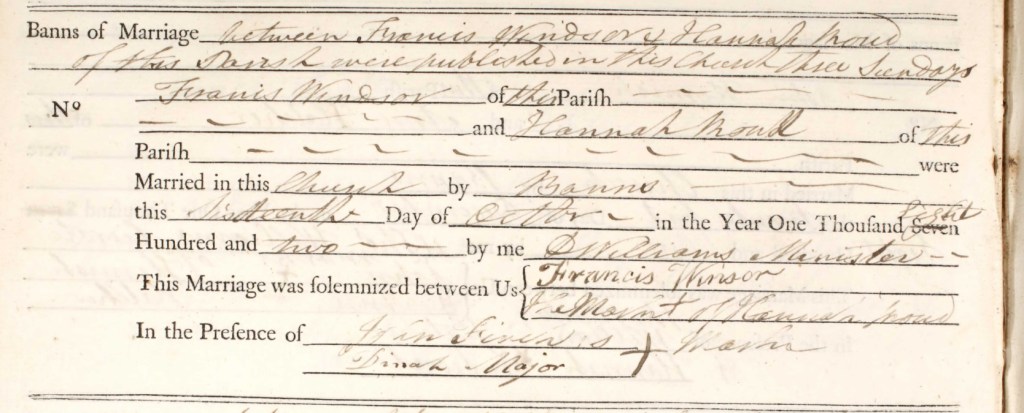 Banns of Marriage between Francis Windsor & Hannah Proud
of this Parish were published in this Church three Sundays
Nº Francis Windsor of this Pariſh
and Hannah Proud of this
Pariſh were
Married in this Church by Banns
this sixteenth Day of Octbr in the Year One Thouſand Seven Eight
Hundred and two by me D Williams Minister
This Marriage was ſolemnized between Us Francis Winsor
The Mark of Hannah Proud
In the Preſence of Marke
Dinah Major